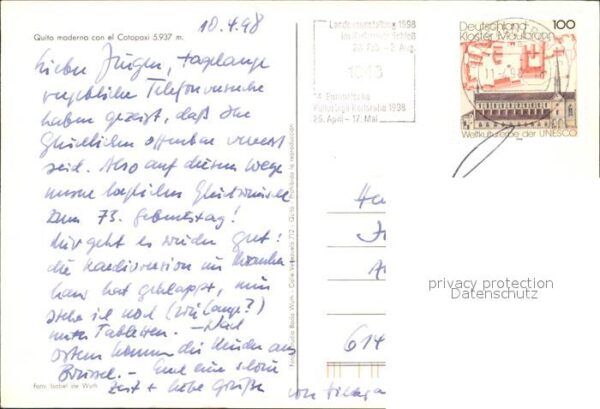 10.4.98
Quito moderno con el Cotopaxi 5.937 m.
Lieber Jürgen, tagelange
vergebliche Telefonversuche
haben gezeigt, daß die
Glücklichen offenbar verreist
seid. Also auf diesem Wege
meine herzlichen Glückwünsche
zum 73. Geburtstag!
Mir geht es wieder gut:
die Kardioversion im Kranken-
haus hat geklappt, nun
stehe ich noch (wie lange?)
unter Tabletten. — Nach
Ostern kommen die Kinder aus
Brüssel. — Euch eine schöne
Zeit + liebe Grüße von
Foto: Isabel de Wuth
Quito
Prohibida la reproducción
Landesausstellung 1998
28. Feb. - 2. Aug.
1848
Europäische
Kulturtage Karlsruhe 1998
25. April - 17. Mai
Deutschland 100
Kloster Maulbronn
Weltkulturerbe der UNESCO
614
privacy protection
Datenschutz